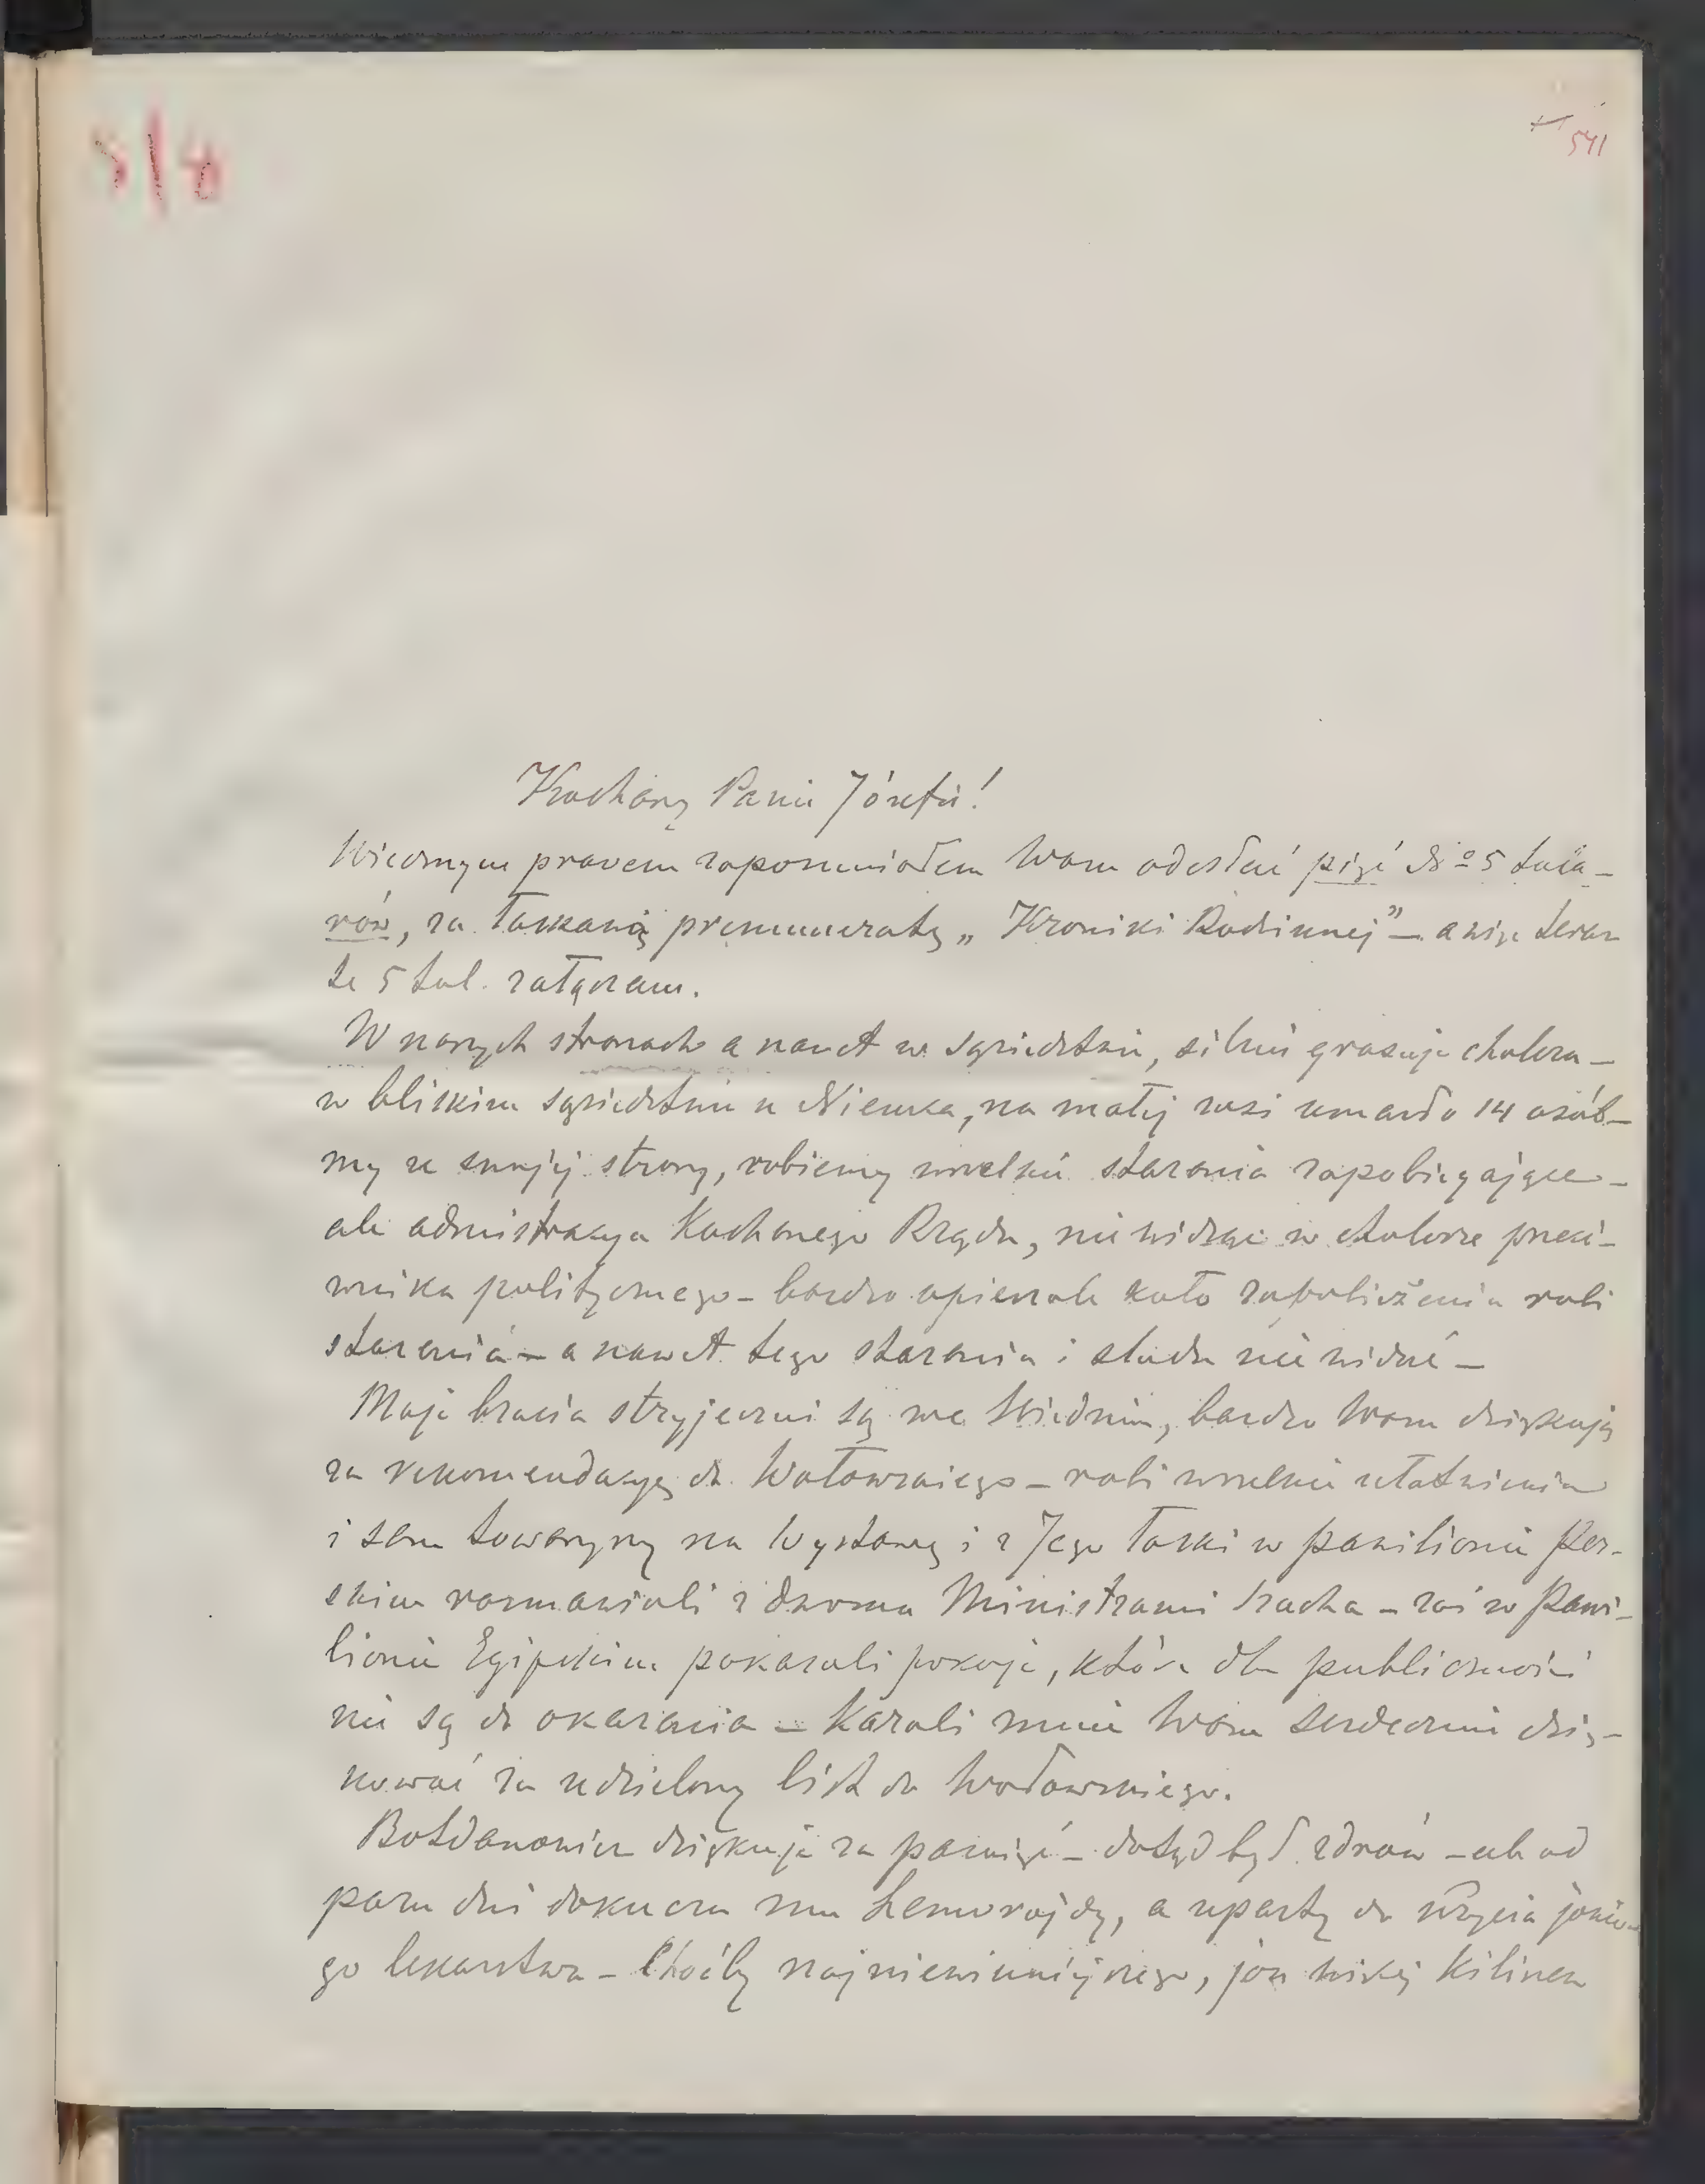 541
Kochany Panie Józefie!
Wiecznym prawem zapomniałem Wam odesłać pięć No 5 tala-
rów, za łaskawą prenumeratę „Kroniki Rodzinnej” – a więc teraz
te 5 tal. załączam.
W naszych stronach a nawet w sąsiedztwie, silnie grasuje cholera –
w bliskim sąsiedztwie u Niemca, na małej wsi umarło 14 osób –
my ze swojej strony, robiemy wszelkie starania zapobiegające –
ale admistracya Kochanego Rządu, nie widząc w cholerze przeci-
wnika politycznego – bardzo opieszale koło zapobieżenia robi
starania – a nawet tego starania i śladu nie widać –
Moje bracia stryjeczni są we Wiedniu, bardzo Wam dziękują
za rekomendacyę do Wołowskiego – robi wszelkie ułatwienia
i sam towarzyszy na Wystawę i z Jego łaski w pawilionie Per-
skim rozmawiali z dwoma Ministrami Szacha – zaś w Pawi-
lionie Egipskim pokazali pokoje, które dla publiczności
nie są do okazania – Kazali mnie Wam serdecznie dzię-
kować za udzielony list do Wołowskiego.
Bołdanowicz dziękuje za pamięć – dotąd był zdrów – ale od
paru dni dokucza mu hemorojdy, a uparty do użycia jakie-
go lekarstwa – choćby najniewinniejszego, jak więcej Kilińca